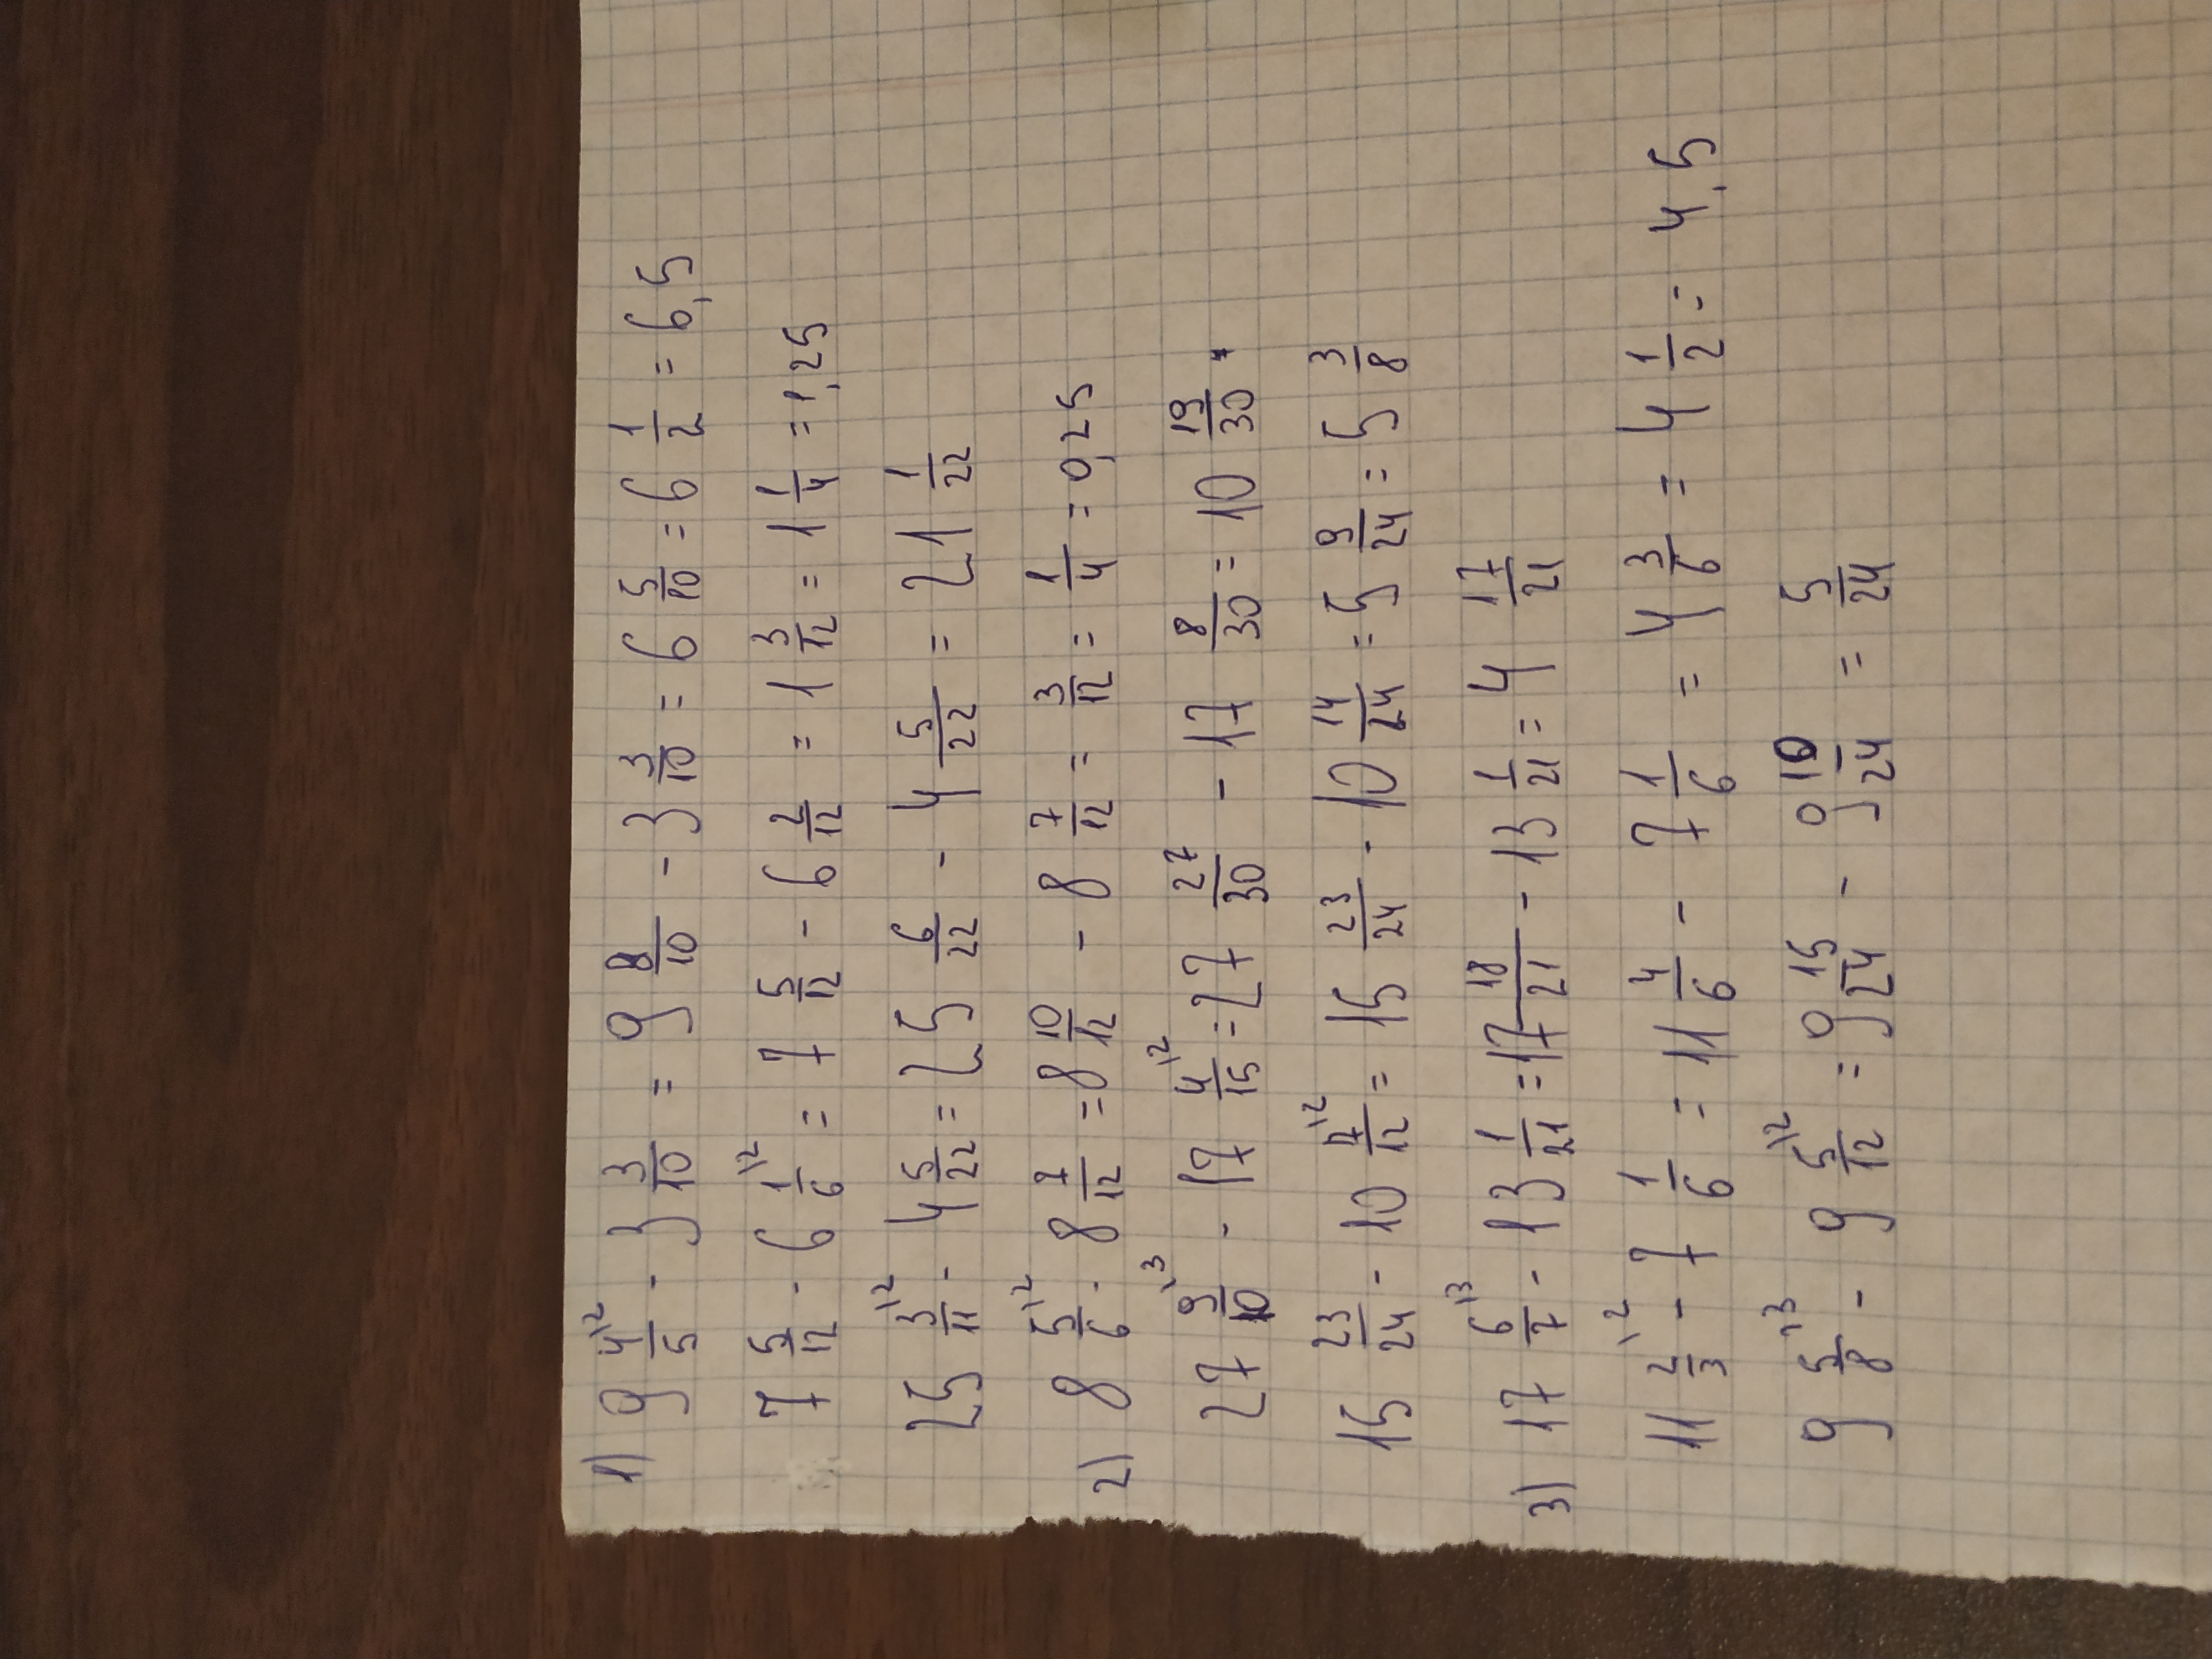 1) 9 4/5 ^{\2} - 3 3/10 = 9 8/10 - 3 3/10 = 6 5/10 = 6 1/2 = 6,5
7 5/12 - 6 1/6 ^{\2} = 7 5/12 - 6 2/12 = 1 3/12 = 1 1/4 = 1,25
25 3/11 ^{\2} - 4 5/22 = 25 6/22 - 4 5/22 = 21 1/22
2) 8 5/6 ^{\2} - 8 7/12 = 8 10/12 - 8 7/12 = 3/12 = 1/4 = 0,25
27 9/10 ^{\3} - 17 4/15 ^{\2} = 27 27/30 - 17 8/30 = 10 19/30
15 23/24 - 10 7/12 ^{\2} = 15 23/24 - 10 14/24 = 5 9/24 = 5 3/8
3) 17 6/7 ^{\3} - 13 1/21 = 17 18/21 - 13 1/21 = 4 17/21
11 2/3 ^{\2} - 7 1/6 = 11 4/6 - 7 1/6 = 4 3/6 = 4 1/2 = 4,5
9 5/8 ^{\3} - 9 5/12 ^{\2} = 9 15/24 - 9 10/24 = 5/24